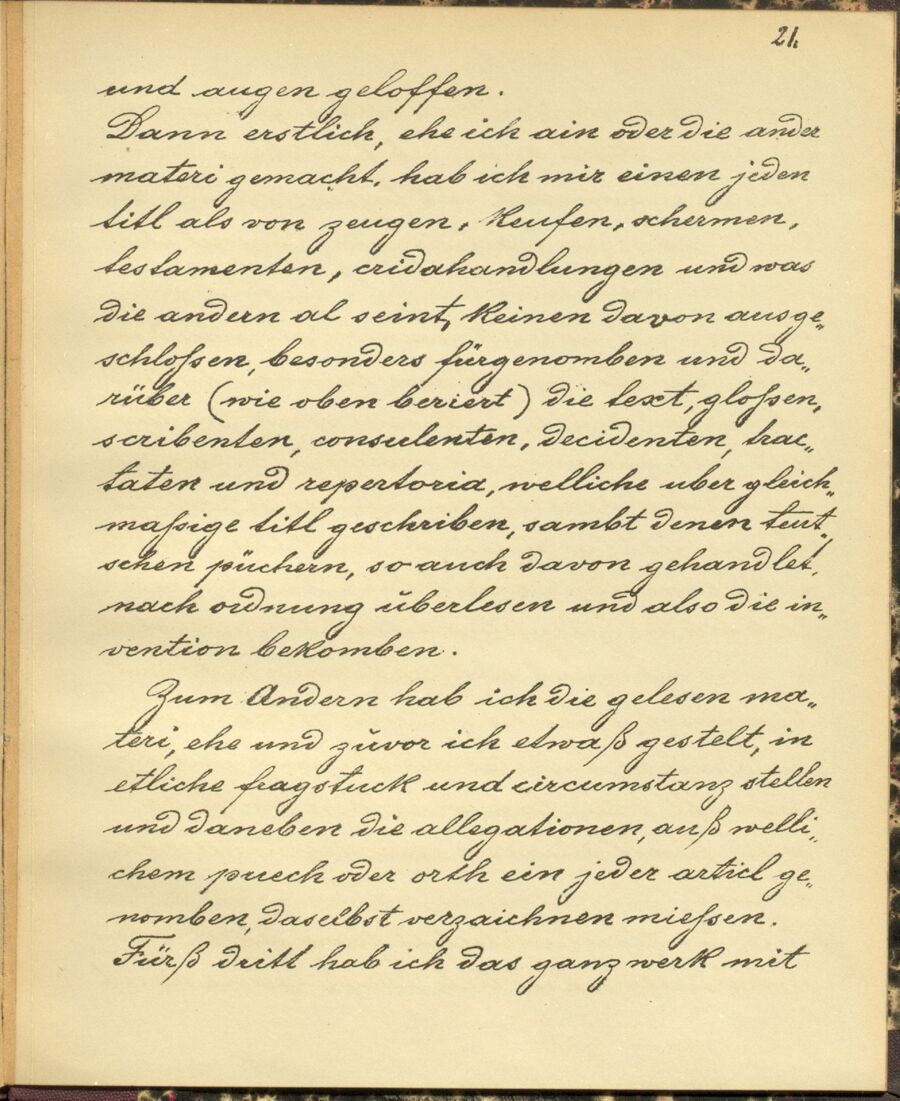 21.
und augen geloffen.
Dann erstlich, ehe ich ain oder die ander
materi gemacht, hab ich mir einen jeden
titl als von zeugen, Keufen, schermen,
testamenten, cridahandlungen und was
die andern al seint, Keinen davon ausge„
schloßen, besonders fürgenomben und da„
rüber (wie oben beriert) die text, gloßen,
scribenten, consulenten, decidenten, trac„
taten und repertoria, welliche uber gleich„
maßige titl geschriben, sambt denen teut„
schen püchern, so auch davon gehandlet,
nach ordnung überlesen und also die in„
vention bekomben.
Zum Andern hab ich die gelesen ma„
teri, ehe und zuvor ich etwaß gestelt, in
etliche fragstuck und circumstanz stellen
und daneben die allegationen, auß welli„
chem puech oder orth ein jeder articl ge„
nomben, daselbst verzaichnen mießen.
Fürß dritt hab ich das ganz werk mit